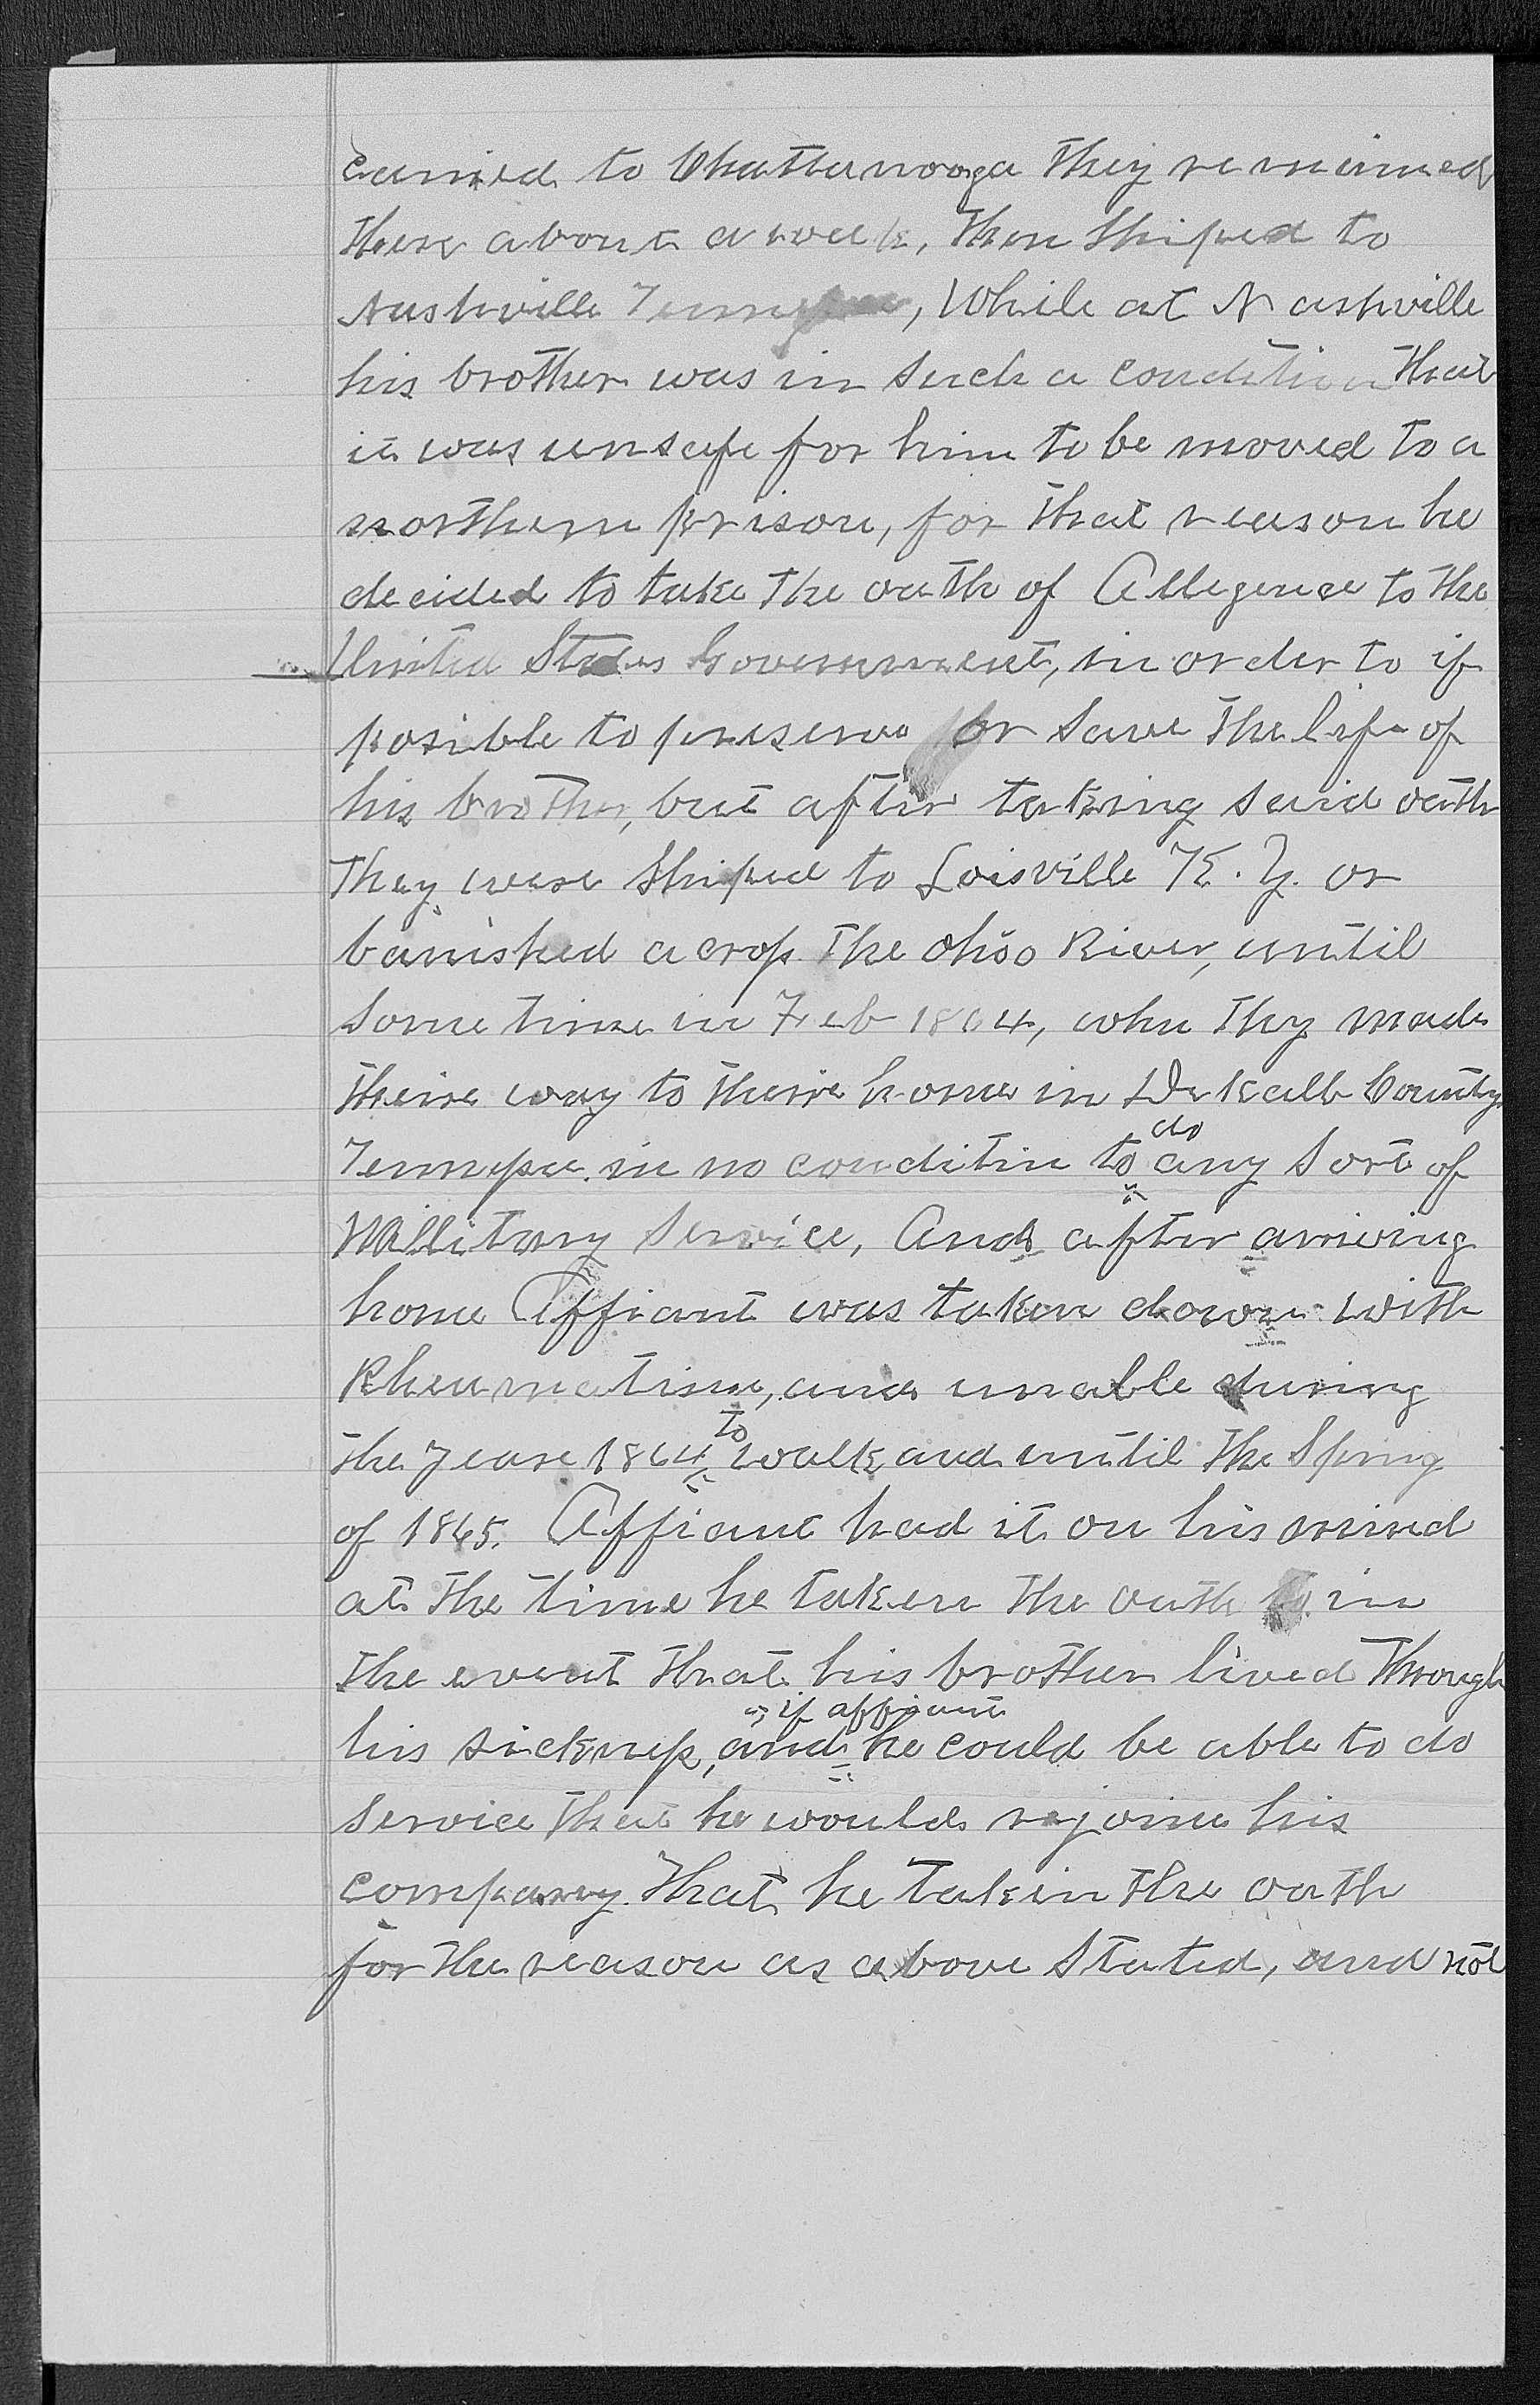 carried to Chattanooga they remained
there about a week, then Shiped to
Nashville Tennessee, While at Nashville
his brother was in such a condition that
it was unsafe for him to be moved to a
northern prison, for that reason he
decided to take the oath of Allegence to the
United States Government, in order to if
posible to preserve or save the life of
his brother, but after taking said oath
They were Shiped to Loisville K.Y. or
banished across the Ohio River, until
Some time in Feb 1864, whn they made
theire way to theire home in DeKalb County
do
Tennessee in no conditin to any Sort of
Millitary Service, And after arriving
home Affiant was taken down with
Rheumatism, and unable during
to
the yeare 1864 walk and until the Spring
of 1865. Affiant had it on his mind
at the time he taken the oath to in
the event that his brother lived Through
if affiant
his sickness, and he could be able to do
Service that he would rejoine his
company. That he taken the oath
for the reason as above Stated, and not